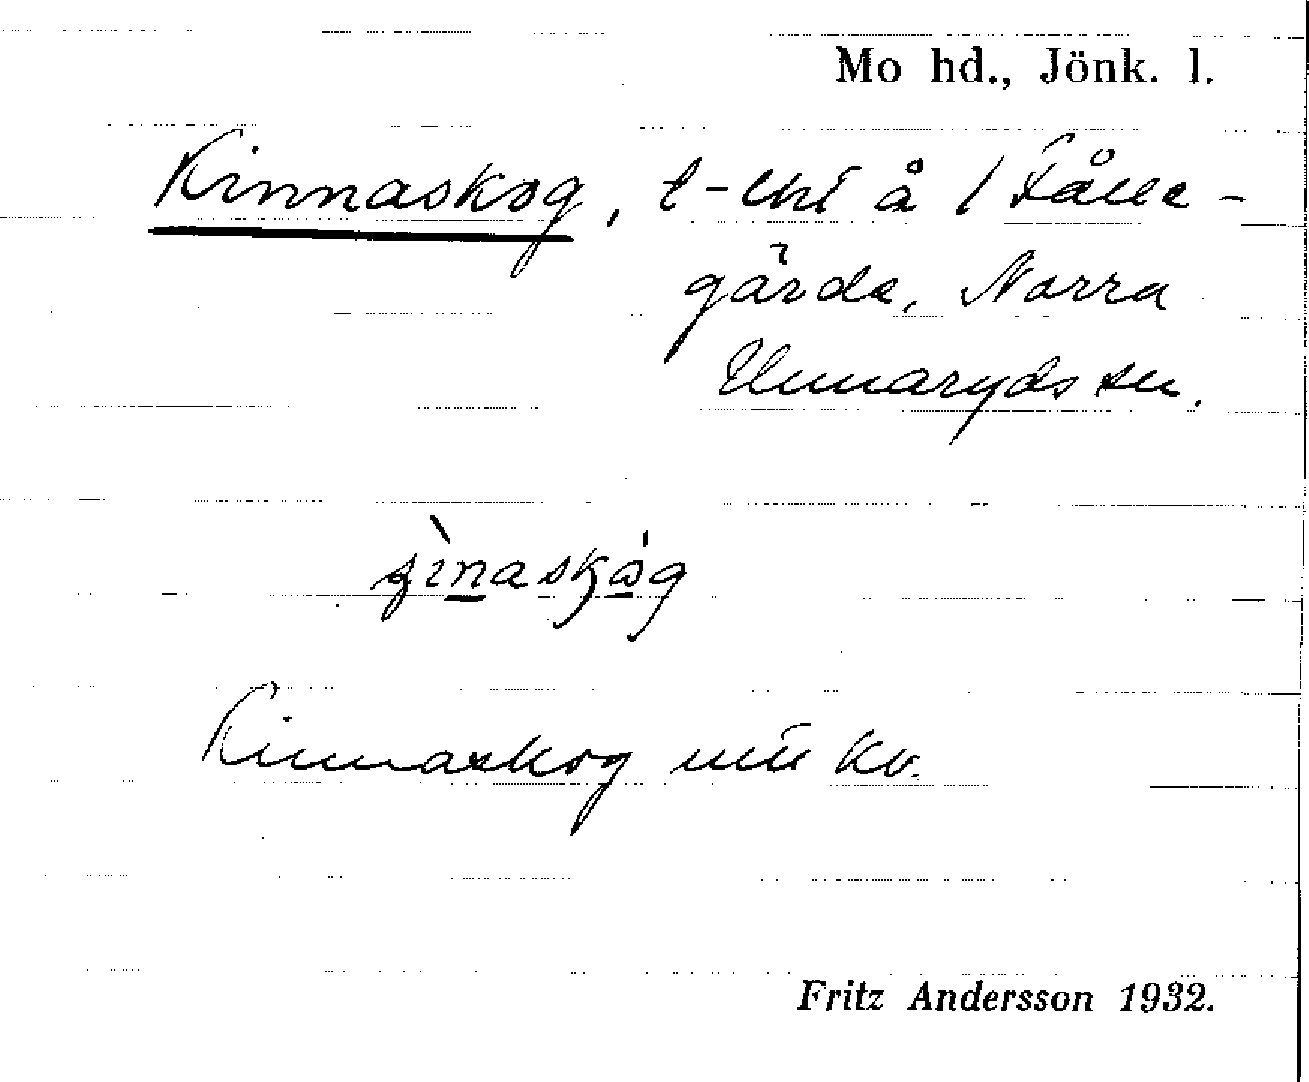 Mo hd., Jönk. l.
Kinnaskog, t-lht å 1 Fålle-
gärde, Norra
Unnaryds sn.
Kinnaskog
Fritz Andersson 1932.